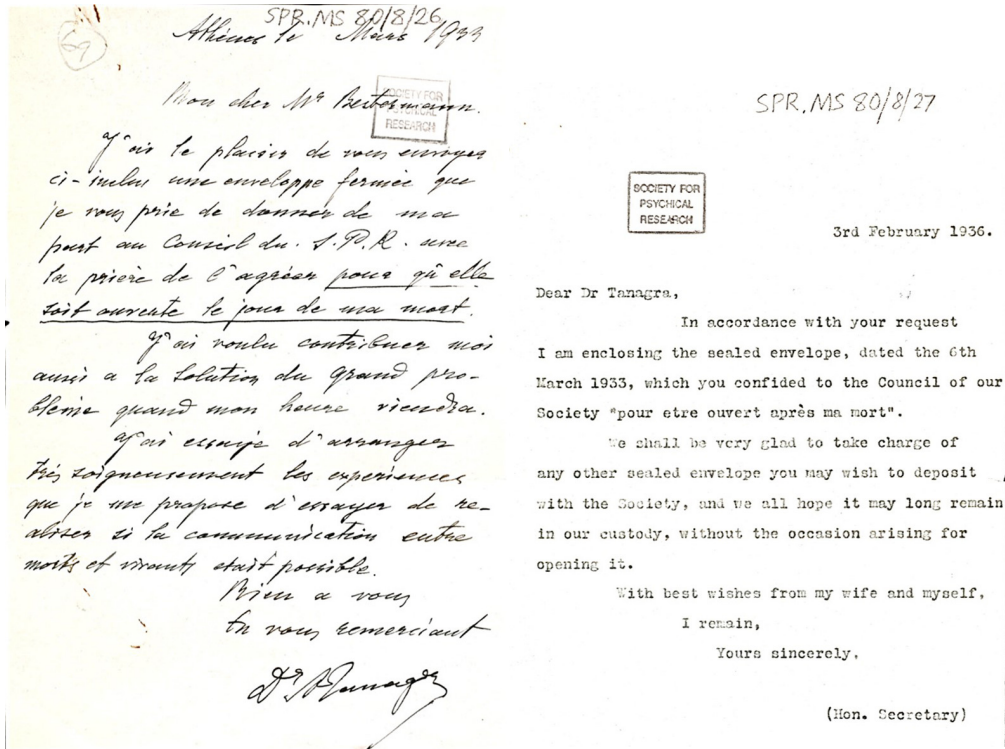 SPR.MS 80/8/26
69
Athènes le Mars 1933
SOCIETY FOR
PSYCHICAL
RESEARCH
Mon cher Mr Bestermann.
J'ai le plaisir de vous envoyer
ci-inclus une enveloppe fermée que
je vous prie de donner de ma
part au Conseil du. S.P.R. avec
la prière de l'agréer pour qu'elle
soit ouverte le jour de ma mort.
J'ai voulu contribuer moi
aussi a la solution du grand pro-
blème quand mon heure viendra.
J'ai essayé d'arranger
très soigneusement les experiences
que je me propose d'essayer de re-
aliser si la communication entre
morts et vivants etait possible.
Bien a vous
En vous remerciant
Dr A Tanagra
SPR.MS 80/8/27
SOCIETY FOR
PSYCHICAL
RESEARCH
3rd February 1936.
Dear Dr Tanagra,
In accordance with your request
I am enclosing the sealed envelope, dated the 6th
March 1933, which you confided to the Council of our
Society "pour etre ouvert après ma mort".
We shall be very glad to take charge of
any other sealed envelope you may wish to deposit
with the Society, and we all hope it may long remain
in our custody, without the occasion arising for
opening it.
With best wishes from my wife and myself,
I remain,
Yours sincerely,
(Hon. Secretary)